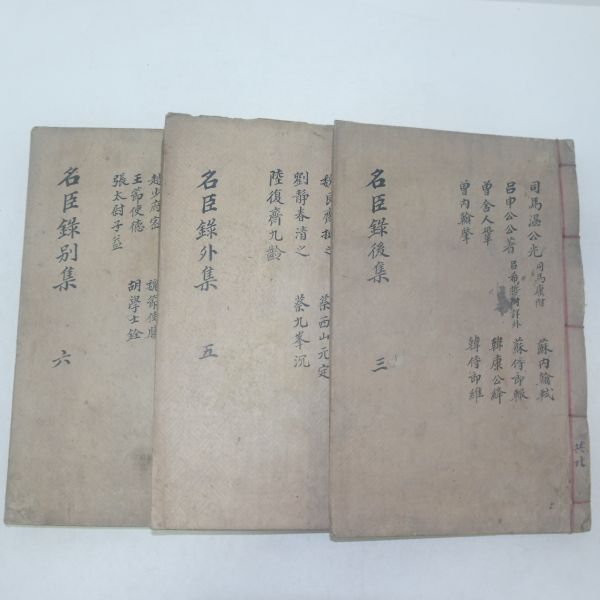 司馬溫公光 司馬康附 蘇內翰軾
呂申公公著 呂希哲附詳外 蘇侍郎轍
曾舍人鞏 韓康公絳
曾內翰肇 韓侍郎維
名臣錄後集 三
蔡西山元定
劉靜春清之 蔡九峯沉
陸復齋九齡
名臣錄外集 五
王節使德 胡學士銓
張太尉子盖
名臣錄別集 六